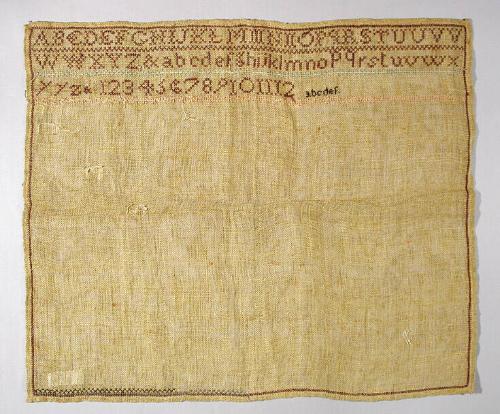 ABCDEFGHIJKLMMNNOPQRSTUUVV
WWXYZ&abcdefghijklmnopqrstuvwx
yyz&123456789101112 abcdef.